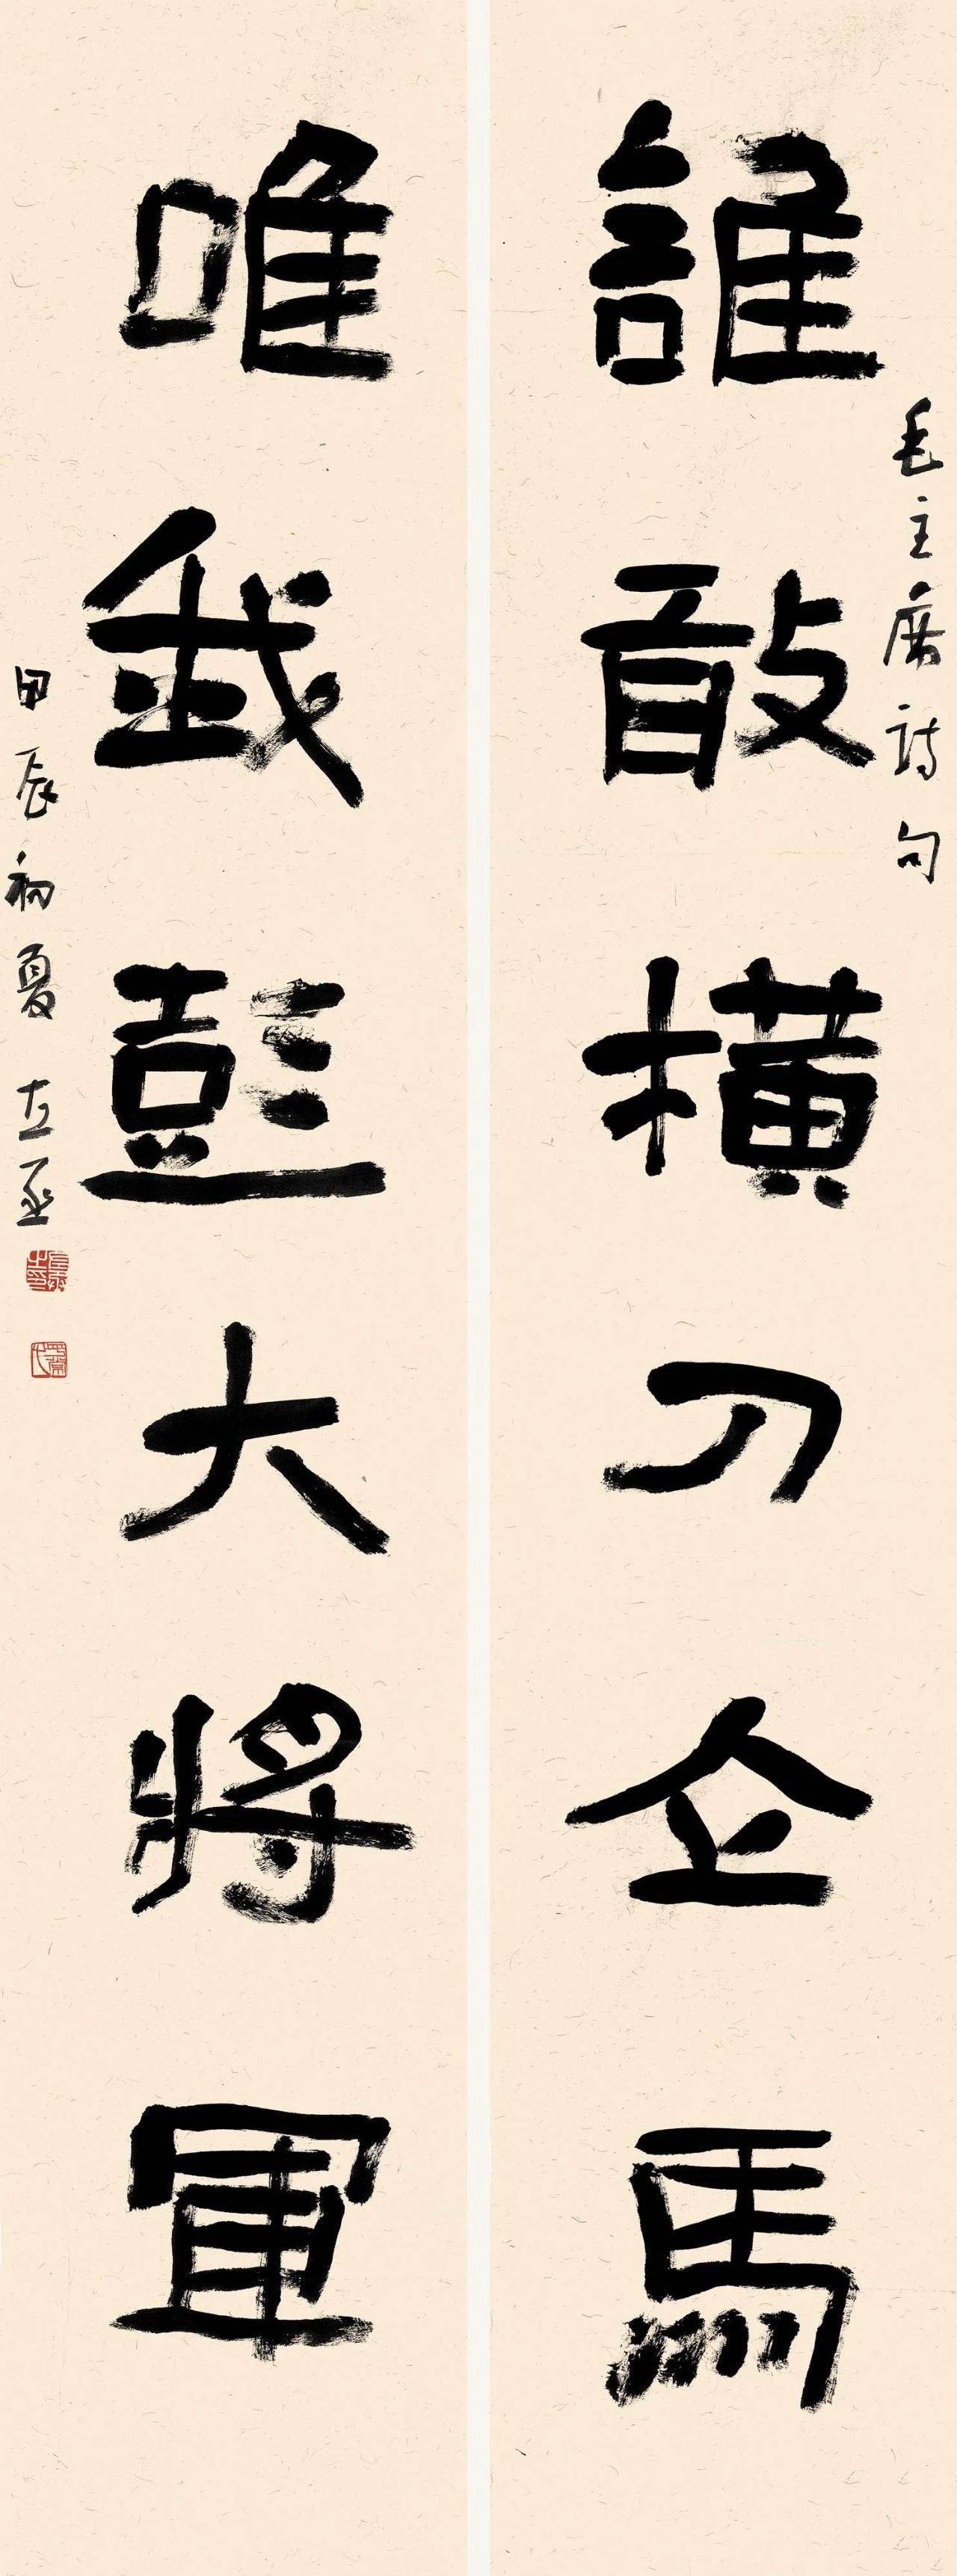 誰敢橫刀立馬
毛主席詩句
唯我彭大將軍
甲辰初夏 左丞